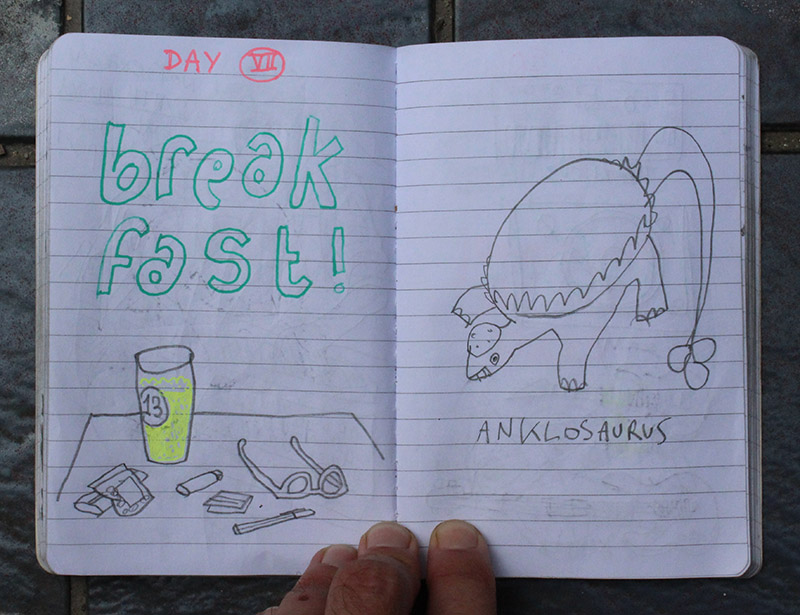 DAY VII
break
fast!
13
ANKLOSAURUS